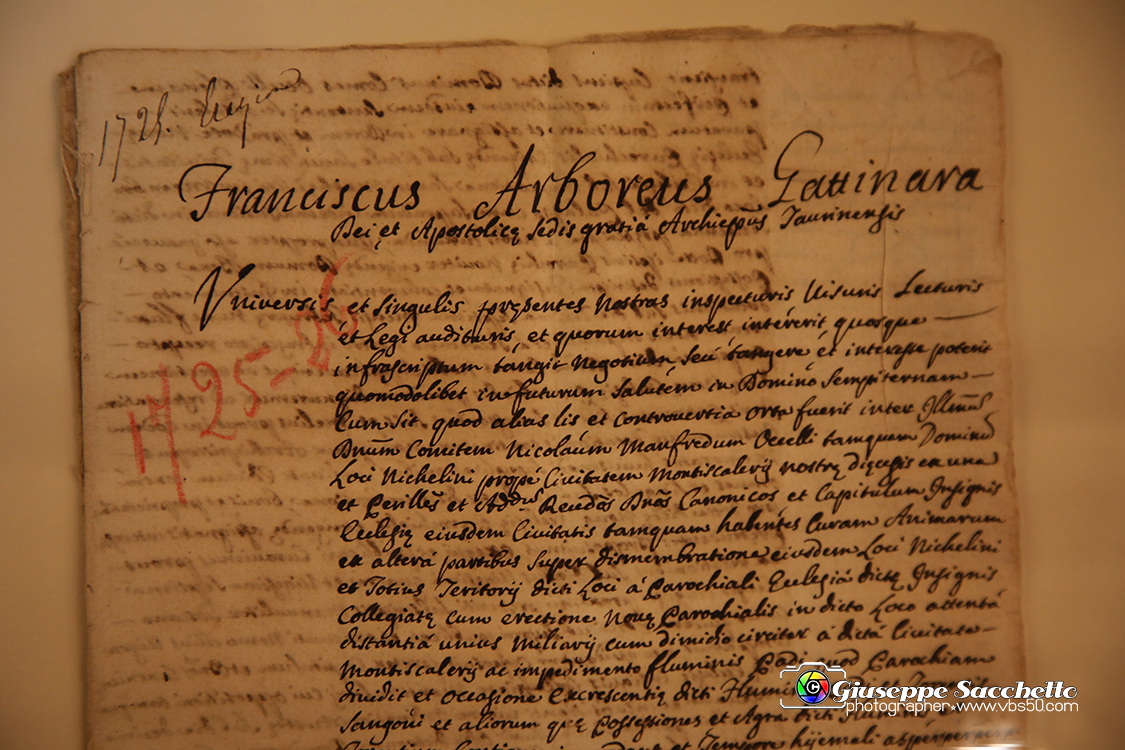 1725.
Franciscus Arboreus Gattinara
Dei et Apostolicę sedis gratiá Archiepũs Taurinensis
1725-26
Vniversis et singulis pręsentes nostras inspecturis Uisuris Lecturis
et Legi audituris, et quorum interest intererit, quosque
infrascriptum tangit Negotium seú tangere et interesse poterit
quomodolibet in futurum salutem in Domino sempiternam
Cum sit quod alias lis et controuertia orta fuerit inter Illm̃ũ
Dnũm Comitem Nicolaúm Manfredum Ocelli tamquam Dominũ
Loci Nichelini propé Ciuitatem Montiscalerij nostrę diȩcesis ex una
et Perillẽs et Addus Reudõs Dnõs Canonicos et Capitulum Insignis
Ecclesię eiusdem Ciuitatis tamquam habentes Curam Animarum
ex alterá partibus super dismembratione eiusdem Loci Nichelini
et Totius Teritorij dicti Loci á Parochiali Ecclesiá dictę Insignis
Collegiatę cum erectione nouę Parochialis in dicto Loco attentá
distantiá unius miliarij cum dimidio circiter á dictá Ciuitate
Montiscalerij ac impedimento fluminis Padi quod Parochiam
diuidit et occasione excrescentię dicti Flumi
Sangoni et aliorum quę Possessiones et Agra dicti
et Tempore hijemali
Giuseppe Sacchetto
photographer•www.vbs50.com